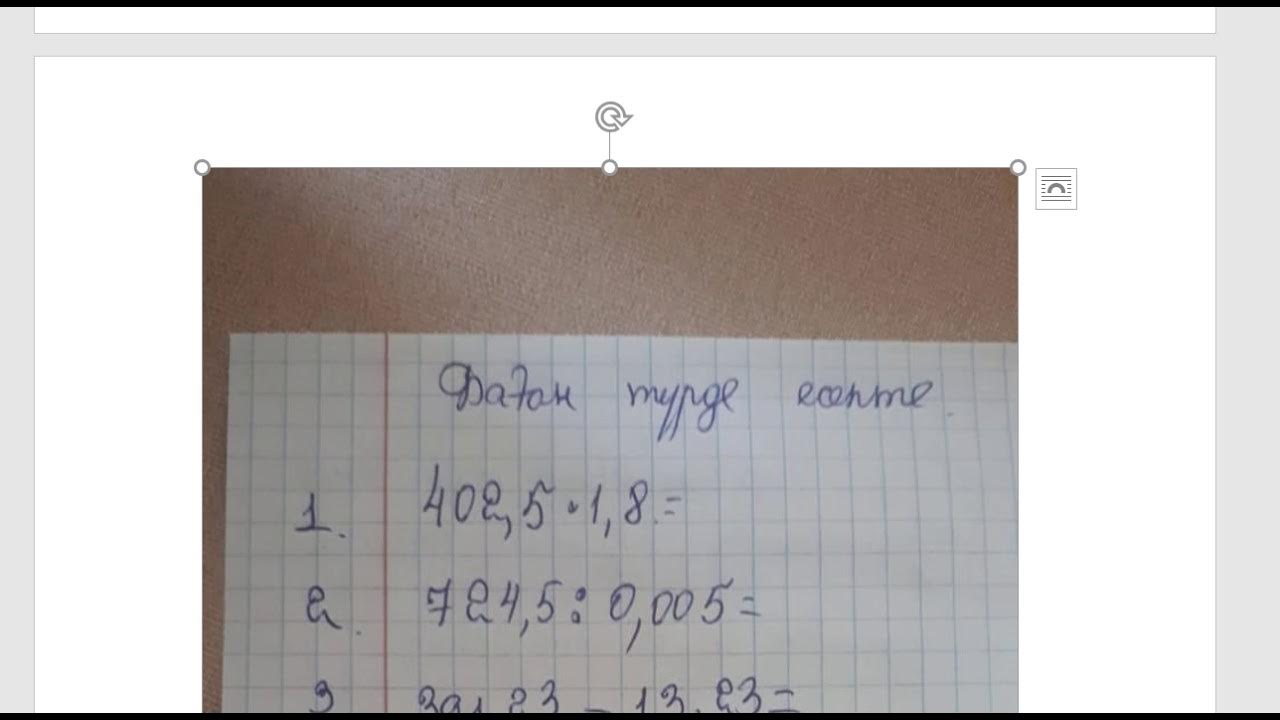 Бағаң түрде есепте.
1. 402,5 · 1,8 =
2. 724,5 : 0,005 =
3